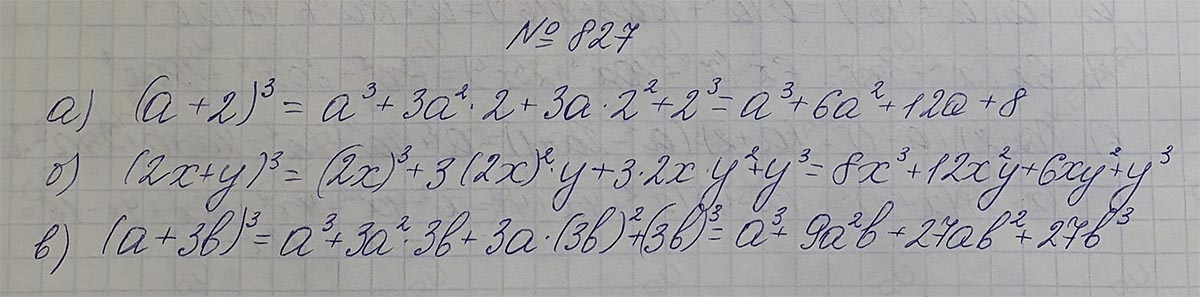 № 827
а) (a + 2)³ = a³ + 3a² · 2 + 3a · 2² + 2³ = a³ + 6a² + 12a + 8
б) (2x+y)³ = (2x)³ + 3(2x)² · y + 3 · 2x · y² + y³ = 8x³ + 12x²y + 6xy² + y³
в) (a + 3b)³ = a³ + 3a² · 3b + 3a · (3b)² + (3b)³ = a³ + 9a²b + 27ab² + 27b³